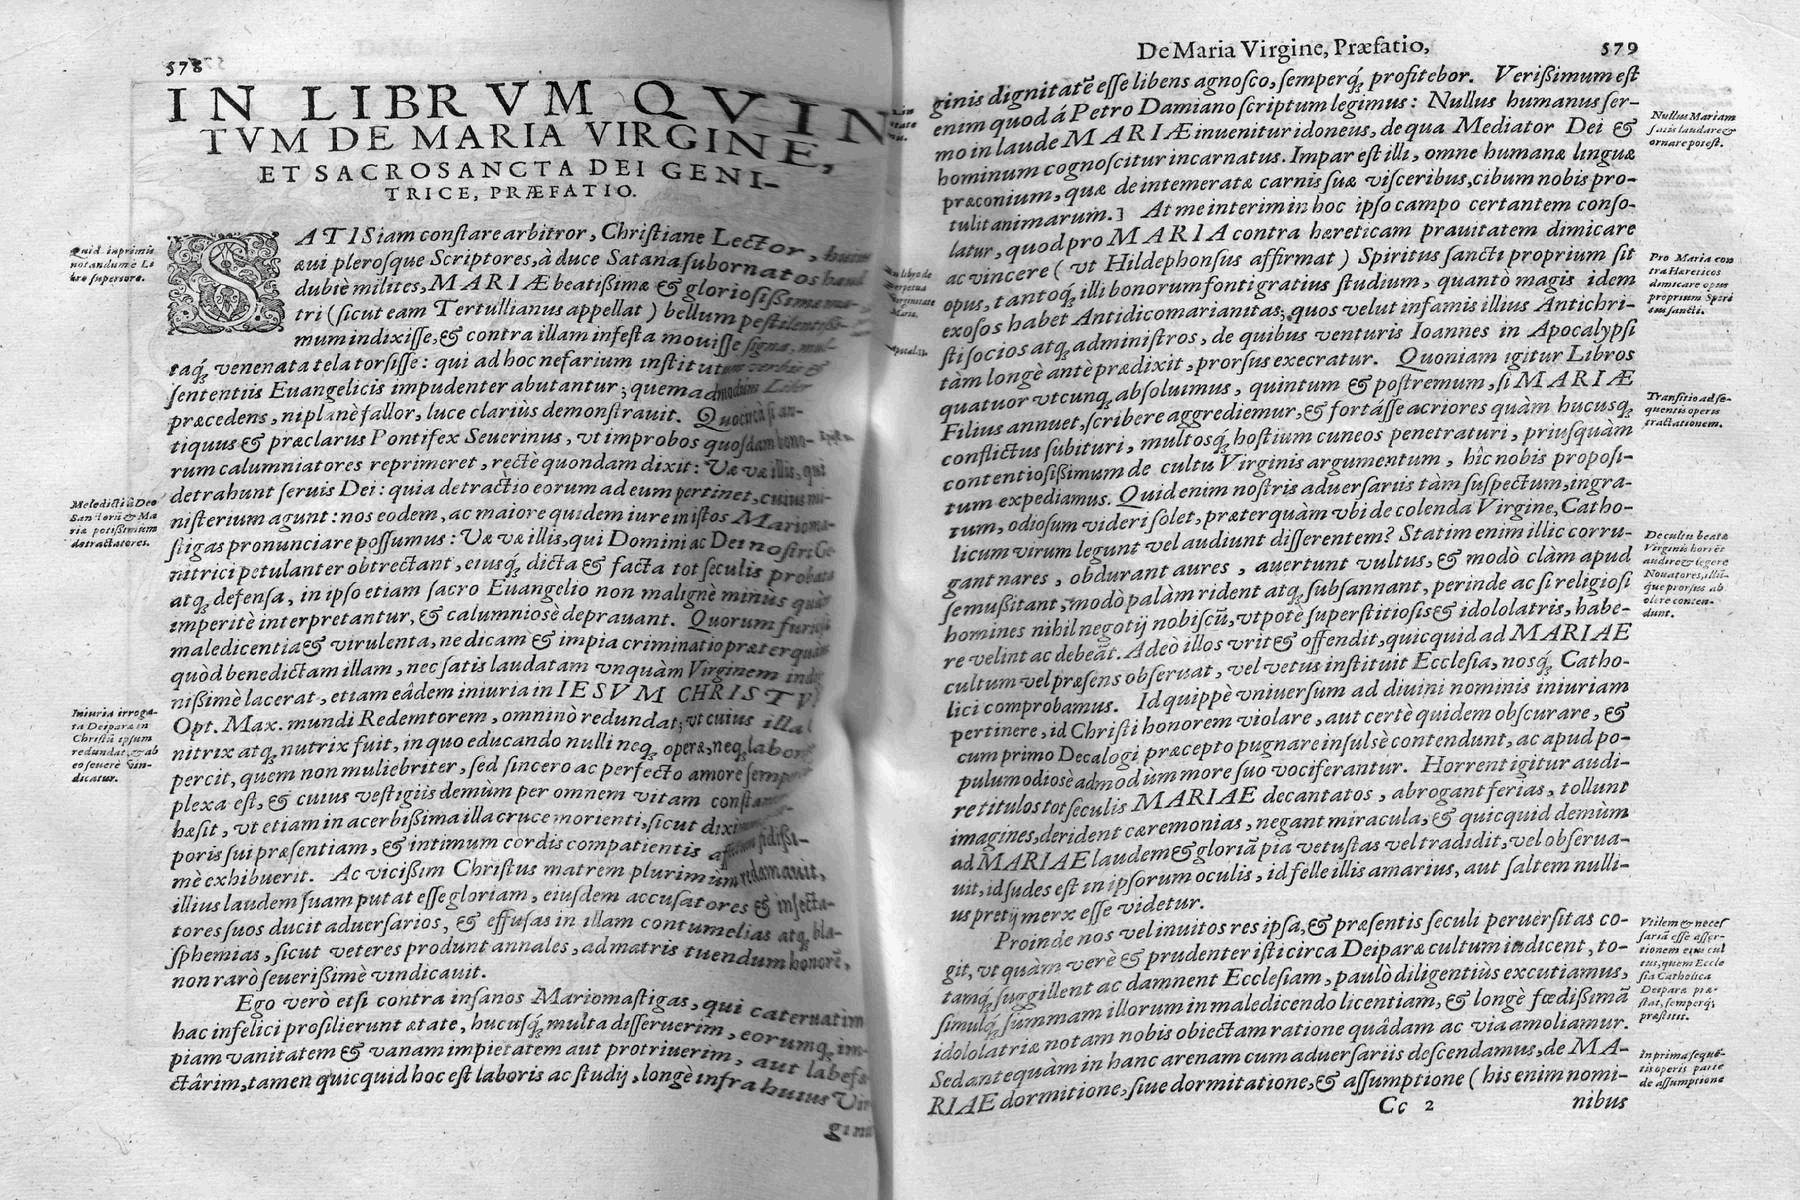 578
IN LIBRVM QVIN
TVM DE MARIA VIRGINE,
ET SACROSANCTA DEI GENI-
TRICE, PRÆFATIO.
Quid inprimis
notandum è Li
bro superiore.
SATIS iam constare arbitror, Christiane Lector, huius
æui plerosque Scriptores, à duce Satana subornatos haud
dubiè milites, MARIÆ beatißimæ & gloriosißimæ ma-
tri (sicut eam Tertullianus appellat) bellum pestilentißi-
mum indixisse, & contra illam infesta mouisse signa, mul-
taq́; venenata tela torsisse: qui ad hoc nefarium institutum verbis &
sententiis Euangelicis impudenter abutantur; quemadmodum Liber
præcedens, ni planè fallor, luce clariùs demonstrauit. Quocircà si an-
tiquus & præclarus Pontifex Seuerinus, vt improbos quosdam bono-
rum calumniatores reprimeret, rectè quondam dixit: Væ væ illis, qui
detrahunt seruis Dei: quia detractio eorum ad eum pertinet, cuius mi-
nisterium agunt: nos eodem, ac maiore quidem iure in istos Marioma-
stigas pronunciare possumus: Væ væ illis, qui Domini ac Dei nostri Ge-
nitrici petulanter obtrectant, eiusq́; dicta & facta tot seculis probata
atq; defensa, in ipso etiam sacro Euangelio non malignè minùs quàm
imperitè interpretantur, & calumniosè deprauant. Quorum furiosa
maledicentia & virulenta, ne dicam & impia criminatio præterquàm
quòd benedictam illam, nec satis laudatam vnquàm Virginem indig-
nißimè lacerat, etiam eâdem iniuria in IESVM CHRISTVM
Opt. Max. mundi Redemtorem, omninò redundat; vt cuius illa
nitrix atq; nutrix fuit, in quo educando nulli neq; operæ, neq; labori
percit, quem non muliebriter, sed sincero ac perfecto amore semper
plexa est, & cuius vestigiis demùm per omnem vitam constanter
hæsit, vt etiam in acerbißima illa cruce morienti, sicut diximus
poris sui præsentiam, & intimum cordis compatientis affectum fidißi-
mè exhibuerit. Ac vicißim Christus matrem plurimùm redamauit,
illius laudem suam putat esse gloriam, eiusdem accusatores & insecta-
tores suos ducit aduersarios, & effusas in illam contumelias atq; bla-
sphemias, sicut veteres produnt annales, ad matris tuendum honorē,
non rarò seuerißimè vindicauit.
Ego verò etsi contra insanos Mariomastigas, qui cateruatim
hac infelici prosilierunt ætate, hucusq́; multa disseruerim, eorumq; im-
piam vanitatem & vanam impietatem aut protriuerim, aut labefa-
ctârim, tamen quicquid hoc est laboris ac studij, longè infra huius Vir-
Maledicti à Deo
Sanctorū & Ma
riæ potißimùm
detractatores.
Iniuria irroga-
ta Deiparæ in
Christū ipsum
redundat, & ab
eo seuerè vin-
dicatur.
De Maria Virgine, Præfatio,
579
ginis dignitatē esse libens agnosco, semperq́; profitebor. Verißimum est
enim quod á Petro Damiano scriptum legimus: Nullus humanus ser-
mo in laude MARIÆ inuenitur idoneus, de qua Mediator Dei &
hominum cognoscitur incarnatus. Impar est illi, omne humanæ linguæ
præconium, quæ de intemeratæ carnis suæ visceribus, cibum nobis pro-
tulit animarum.] At me interim in hoc ipso campo certantem conso-
latur, quod pro MARIA contra hæreticam prauitatem dimicare
ac vincere (vt Hildephonsus affirmat) Spiritus sancti proprium sit
opus, tantoq́; illi bonorum fonti gratius studium, quantò magis idem
exosos habet Antidicomarianitas; quos velut infamis illius Antichri-
sti socios atq; administros, de quibus venturis Ioannes in Apocalypsi
tàm longè antè prædixit, prorsus execratur. Quoniam igitur Libros
quatuor vtcunq; absoluimus, quintum & postremum, si MARIÆ
Filius annuet, scribere aggrediemur, & fortásse acriores quàm hucusq;
conflictus subituri, multosq́; hostium cuneos penetraturi, priusquàm
contentiosißimum de cultu Virginis argumentum, hîc nobis proposi-
tum expediamus. Quid enim nostris aduersariis tàm suspectum, ingra-
tum, odiosum videri solet, præterquàm vbi de colenda Virgine, Catho-
licum virum legunt vel audiunt disserentem? Statim enim illic corru-
gant nares, obdurant aures, auertunt vultus, & modò clàm apud
se mußitant, modò palàm rident atq; subsannant, perinde ac si religiosi
homines nihil negotij nobiscū, vtpotè superstitiosis & idololatris, habe-
re velint ac debeāt. Adeò illos vrit & offendit, quicquid ad MARIAE
cultum vel præsens obseruat, vel vetus instituit Ecclesia, nosq́; Catho-
lici comprobamus. Id quippè vniuersum ad diuini nominis iniuriam
pertinere, id Christi honorem violare, aut certè quidem obscurare, &
cum primo Decalogi præcepto pugnare insulsè contendunt, ac apud po-
pulum odiosè admodùm more suo vociferantur. Horrent igitur audi-
re titulos tot seculis MARIAE decantatos, abrogant ferias, tollunt
imagines, derident cæremonias, negant miracula, & quicquid demùm
ad MARIAE laudem & gloriā pia vetustas vel tradidit, vel obserua-
uit, id sudes est in ipsorum oculis, id felle illis amarius, aut saltem nulli-
us pretij merx esse videtur.
Proinde nos vel inuitos res ipsa, & præsentis seculi peruersitas co-
git, vt quàm verè & prudenter isti circa Deiparæ cultum iudicent, to-
tamq́; suggillent ac damnent Ecclesiam, paulò diligentiùs excutiamus,
simulq́; summam illorum in maledicendo licentiam, & longè fœdißimā
idololatriæ notam nobis obiectam ratione quâdam ac via amoliamur.
Sed antequàm in hanc arenam cum aduersariis descendamus, de MA-
RIAE dormitione, siue dormitatione, & assumptione (his enim nomi-
Cc 2
nibus
Nullus Mariam
satis laudare &
ornare potest.
Pro Maria con
tra Hæreticos
dimicare opus
proprium Spiri
tus sancti.
Transitio ad se-
quentis operis
tractationem.
De cultu beatæ
Virginis horrēt
audire & legere
Nouatores, illū-
que prorsus ab
olere conten-
dunt.
Vtilem & neces
sariā esse asser-
tionem eius cul
tus, quem Eccle
sia Catholica
Deiparæ præ-
stat, semperq́;
præstitit.
In prima seque-
tis operis parte
de assumptione